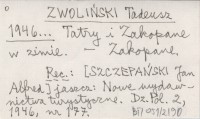 ZWOLIŃSKI Tadeusz
1946... Tatry i Zakopane
w zimie. - Zakopane.
Rec.: [SZCZEPAŃSKI Jan
Alfred] jaszcz: Nowe wydaw-
nictwa turystyczne. Dz. Pol. 2,
1946, na 177.